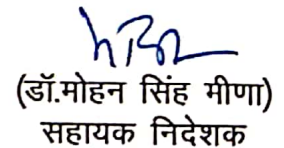 (डॉ.मोहन सिंह मीणा)
सहायक निदेशक